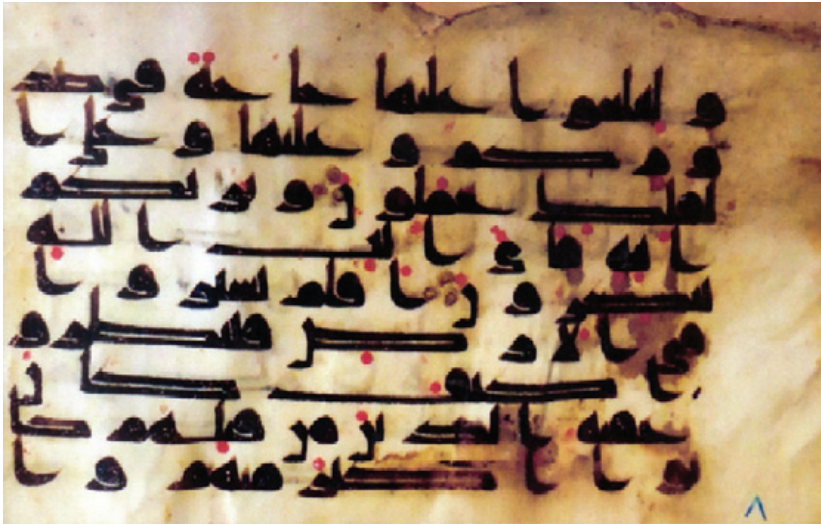 و لتبلغوا عليها حاجة فى صد
و ر كم و عليها و على ا
لفلك تحملو ن و يريكم
ا يته فاى ا يت الله
تنكر و ن ا فلم يسير و ا
فى ا لا ر ض فينظر و
ا كيف كا ن
عقبة ا لذ ين من قبلهم كا
نو ا ا كثر منهم و ا
٨